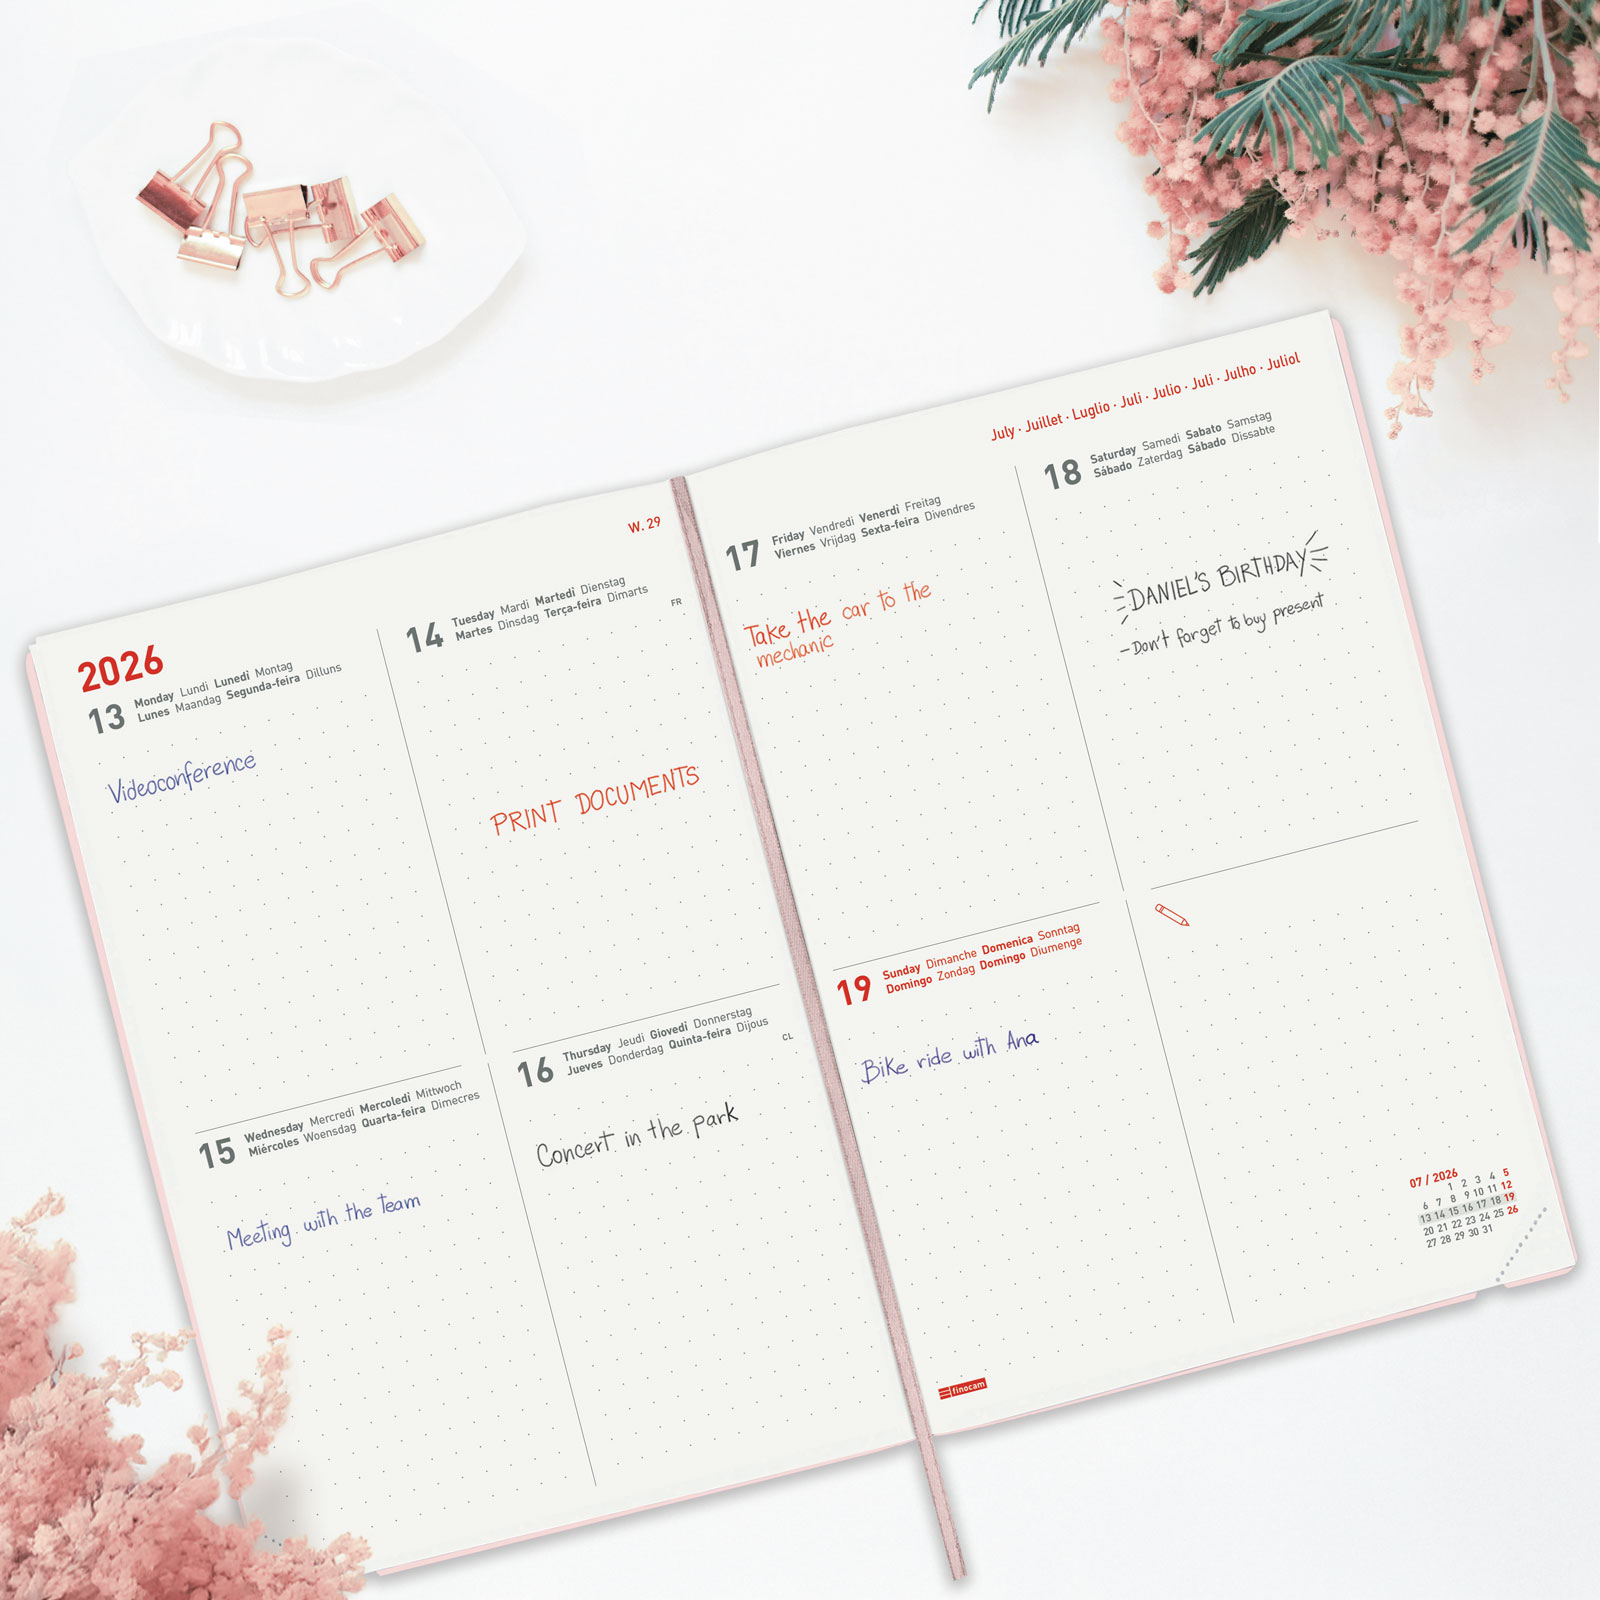 W. 29
2026
13 Monday Lundi Lunedì Montag
Lunes Maandag Segunda-feira Dilluns
Videoconference
14 Tuesday Mardi Martedì Dienstag
Martes Dinsdag Terça-feira Dimarts
FR
PRINT DOCUMENTS
15 Wednesday Mercredi Mercoledì Mittwoch
Miércoles Woensdag Quarta-feira Dimecres
Meeting with the team
16 Thursday Jeudi Giovedì Donnerstag
Jueves Donderdag Quinta-feira Dijous
CL
Concert in the park
July · Juillet · Luglio · Juli · Julio · Juli · Julho · Juliol
17 Friday Vendredi Venerdì Freitag
Viernes Vrijdag Sexta-feira Divendres
Take the car to the
mechanic
18 Saturday Samedi Sabato Samstag
Sábado Zaterdag Sábado Dissabte
DANIEL'S BIRTHDAY
- Don't forget to buy present
19 Sunday Dimanche Domenica Sonntag
Domingo Zondag Domingo Diumenge
Bike ride with Ana
07 / 2026
1 2 3 4 5
6 7 8 9 10 11 12
13 14 15 16 17 18 19
20 21 22 23 24 25 26
27 28 29 30 31
finocam